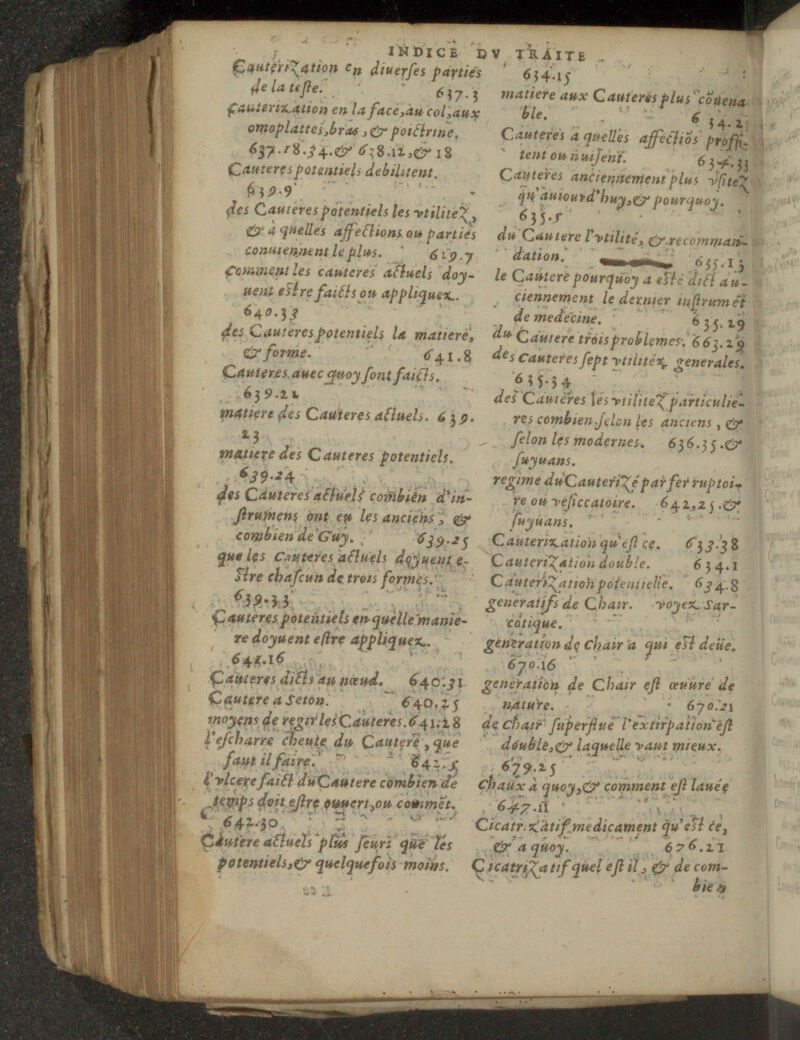 INDICE DV TRAITE
Cauteriζation en diuerses parties
de la teste. 637.3
Cauterization en la face, au col, aux
omoplattes, bras, & poictrine,
637.18.34.& 638.12,& 18
Cauteres potentiels debilitent.
639.9
des Cauteres potentiels les vtiliteζ,
& à quelles affections ou parties
conuiennent le plus. 619.7
Comment les cauteres actuels doy-
uent estre faicts ou appliquez.
640.33
des Cauteres potentiels la matiere,
& forme. 641.8
Cauteres auec quoy sont faicts.
639.21
matiere des Cauteres actuels. 639.
23
matiere des Cauteres potentiels.
639.24
des Cauteres actuels combien d'in-
strumens ont eu les anciens, &
combien de Guy. 639.25
que les Cauteres actuels doyuent e-
stre chascun de trois formes.
639.33
Cauteres potentiels en quelle manie-
re doyuent estre appliquez.
641.16
Cauteres dicts au nœud. 640.31
Cautere a Seton. 640.25
moyens de regir les Cauteres. 641.28
l'escharre cheute du Cautere, que
faut il faire. 642.5
l'vlcere faict du Cautere combien de
temps doit estre ouuert, ou commēt.
642.30
Cautere actuels plus seurs que les
potentiels, & quelquefois moins.
634.15
matiere aux Cauteres plus couena
ble. 634.21
Cauteres a quelles affectiōs proffi-
tent ou nuisent. 634.33
Cauteres anciennement plus vsiteζ
qu'auiourd'huy, & pourquoy.
635.5
du Cautere l'vtilité, & recomman-
dation. 635.13
le Cautere pourquoy a esté dict an-
ciennement le dernier instrumēt
de medecine. 635.29
du Cautere trois problemes. 663.29
des cauteres sept vtilitéz generales.
635.34
des Cauteres les vtiliteζ particulie-
res combien selon les anciens, &
selon les modernes. 636.35.&
suyuans.
regime du Cauteriζé par fer ruptoi-
re ou vesiccatoire. 642,25.&
suyuans.
Cauterization qu'est ce. 633.38
Cauteriζation double. 634.1
Cauteriζation potentielle. 634.8
generatifs de Chair. voyez Sar-
cotique.
generation de Chair a qui est deüe.
670.16
generation de Chair est œuure de
nature. 670.21
de chair superflue l'extirpation est
double, & laquelle vaut mieux.
679.25
Chaux à quoy, & comment est lauée
647.11
Cicatrizatif medicament qu'est ce,
& a quoy. 676.21
Cicatriζatif quel est il, & de com-
bien